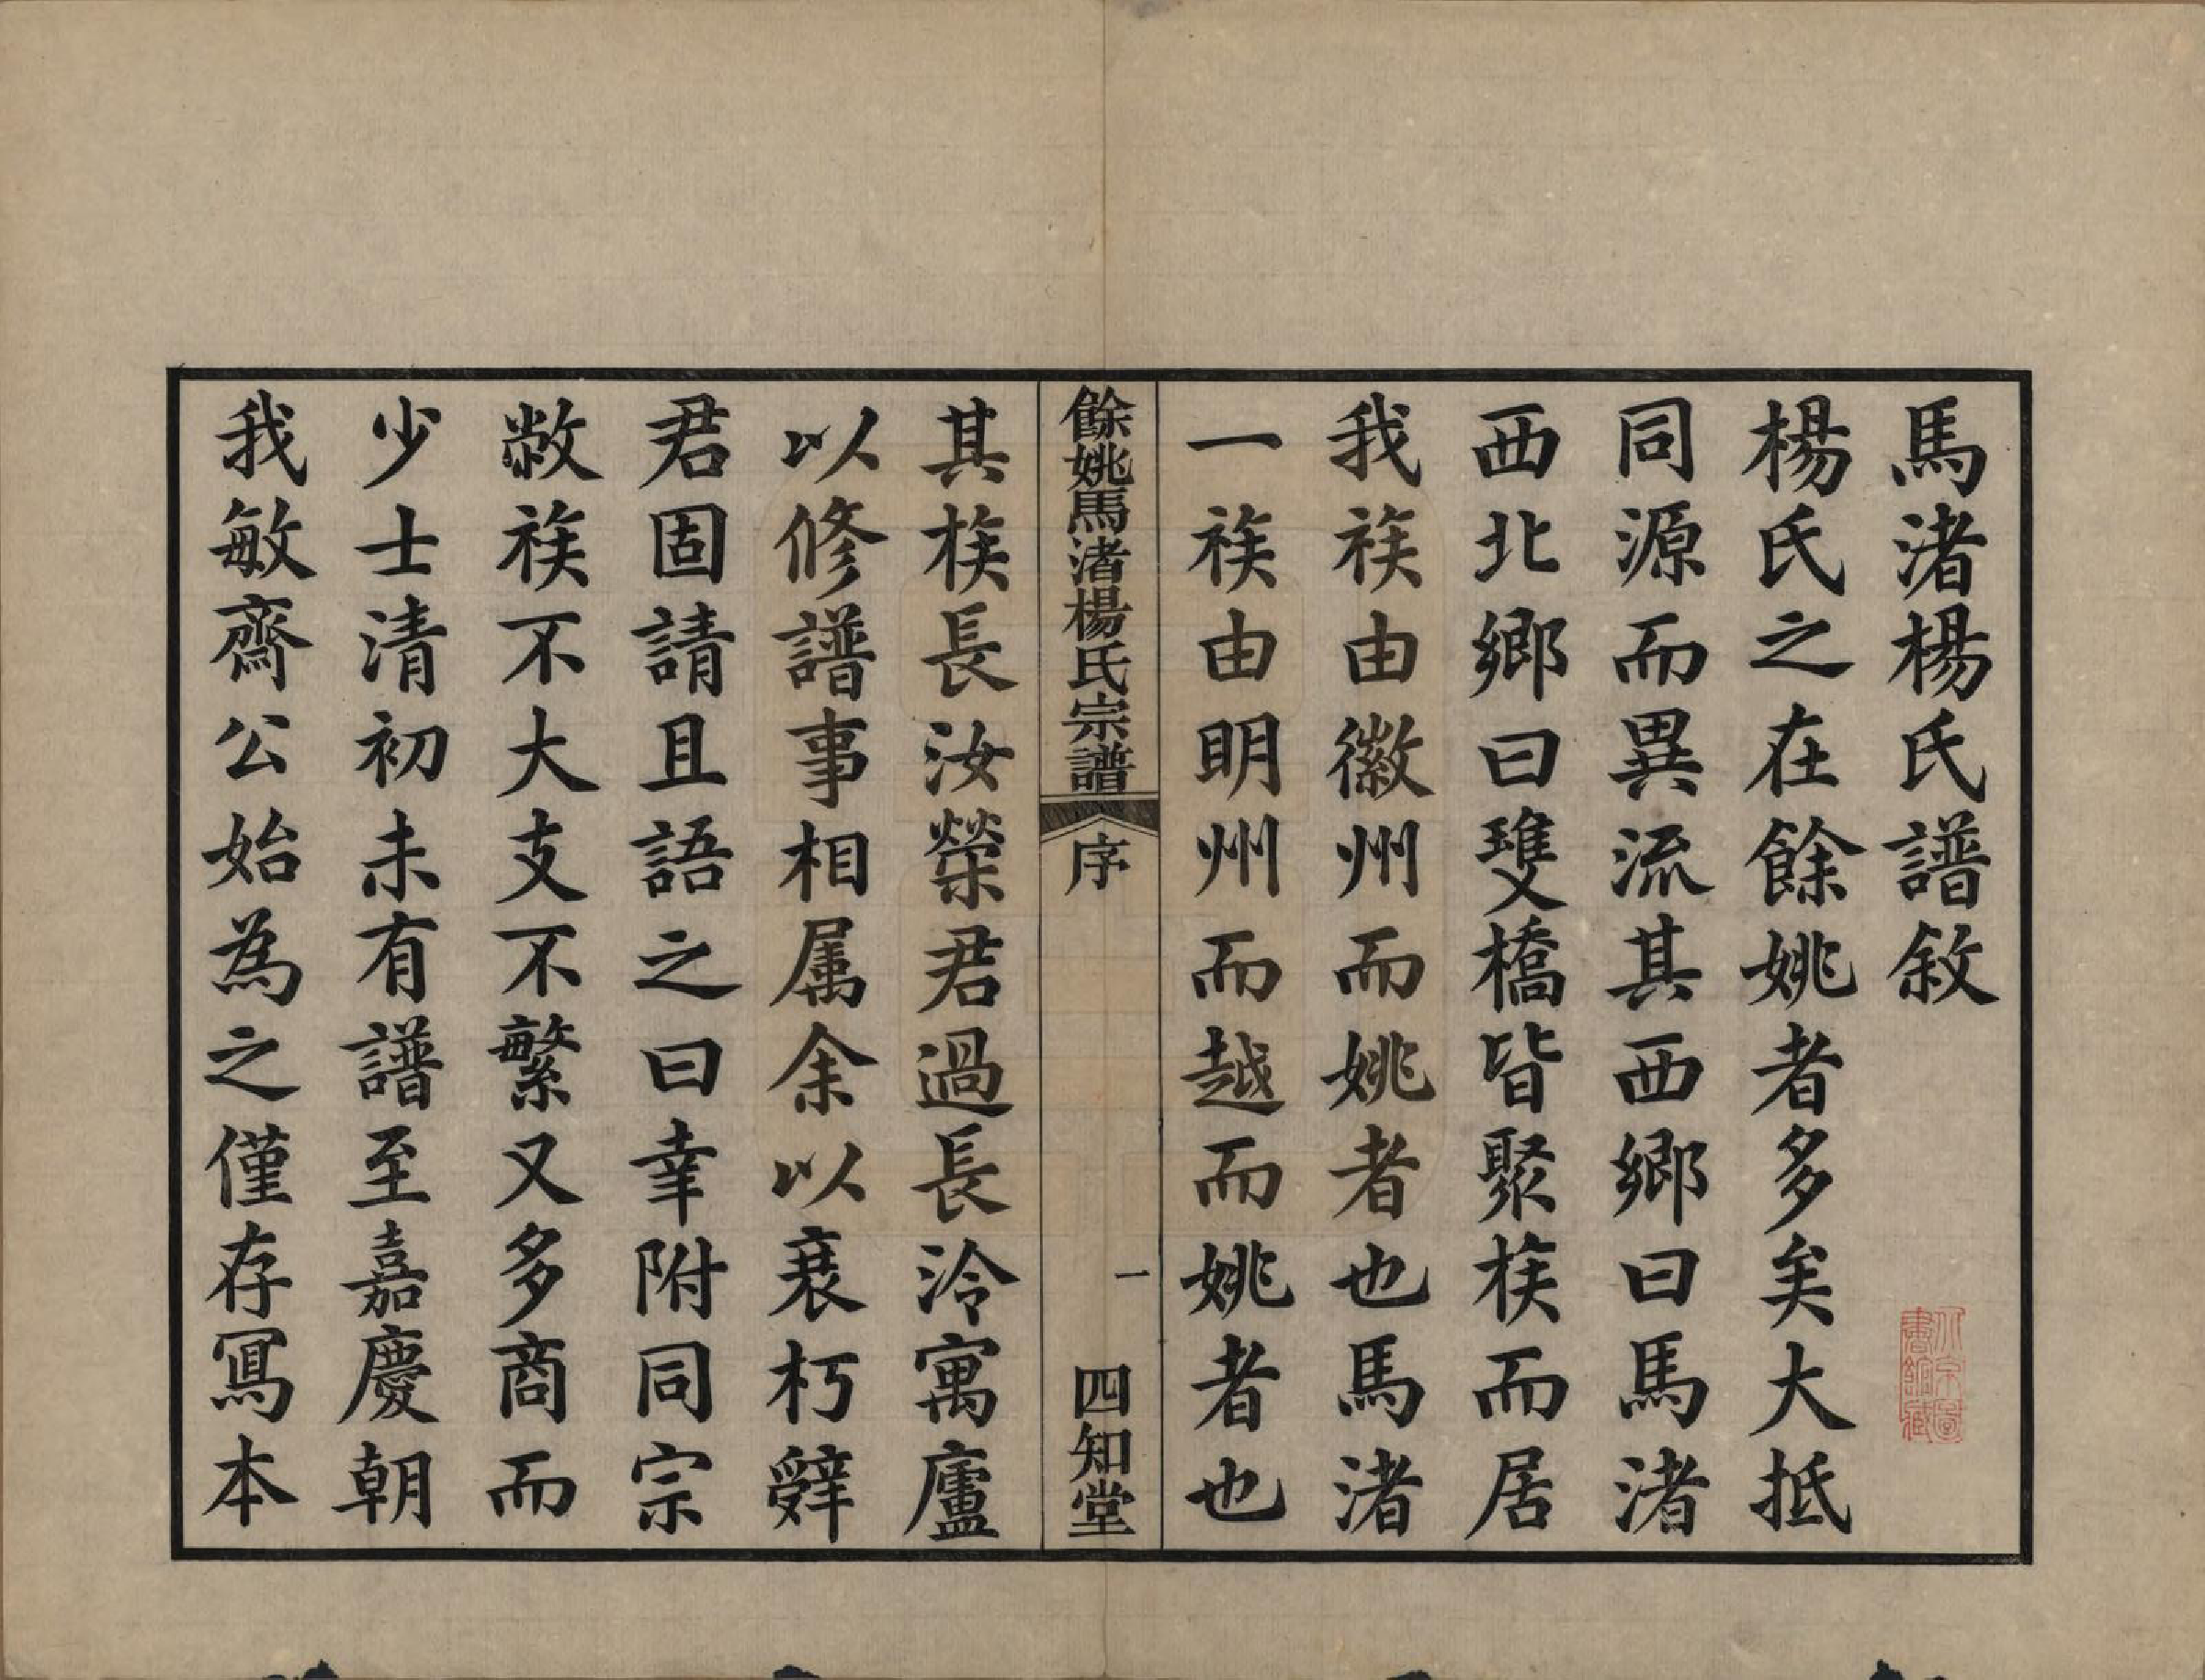 馬渚楊氏譜敘
楊氏之在餘姚者多矣大抵
同源而異流其西鄉曰馬渚
西北鄉曰雙橋皆聚族而居
我族由徽州而姚者也馬渚
一族由明州而越而姚者也
餘姚馬渚楊氏宗譜 序 一 四知堂
其族長汝榮君過長泠寓廬
以修譜事相属余以衰朽辭
君固請且語之曰幸附同宗
敝族不大支不繁又多商而
少士清初未有譜至嘉慶朝
我敏齋公始為之僅存寫本